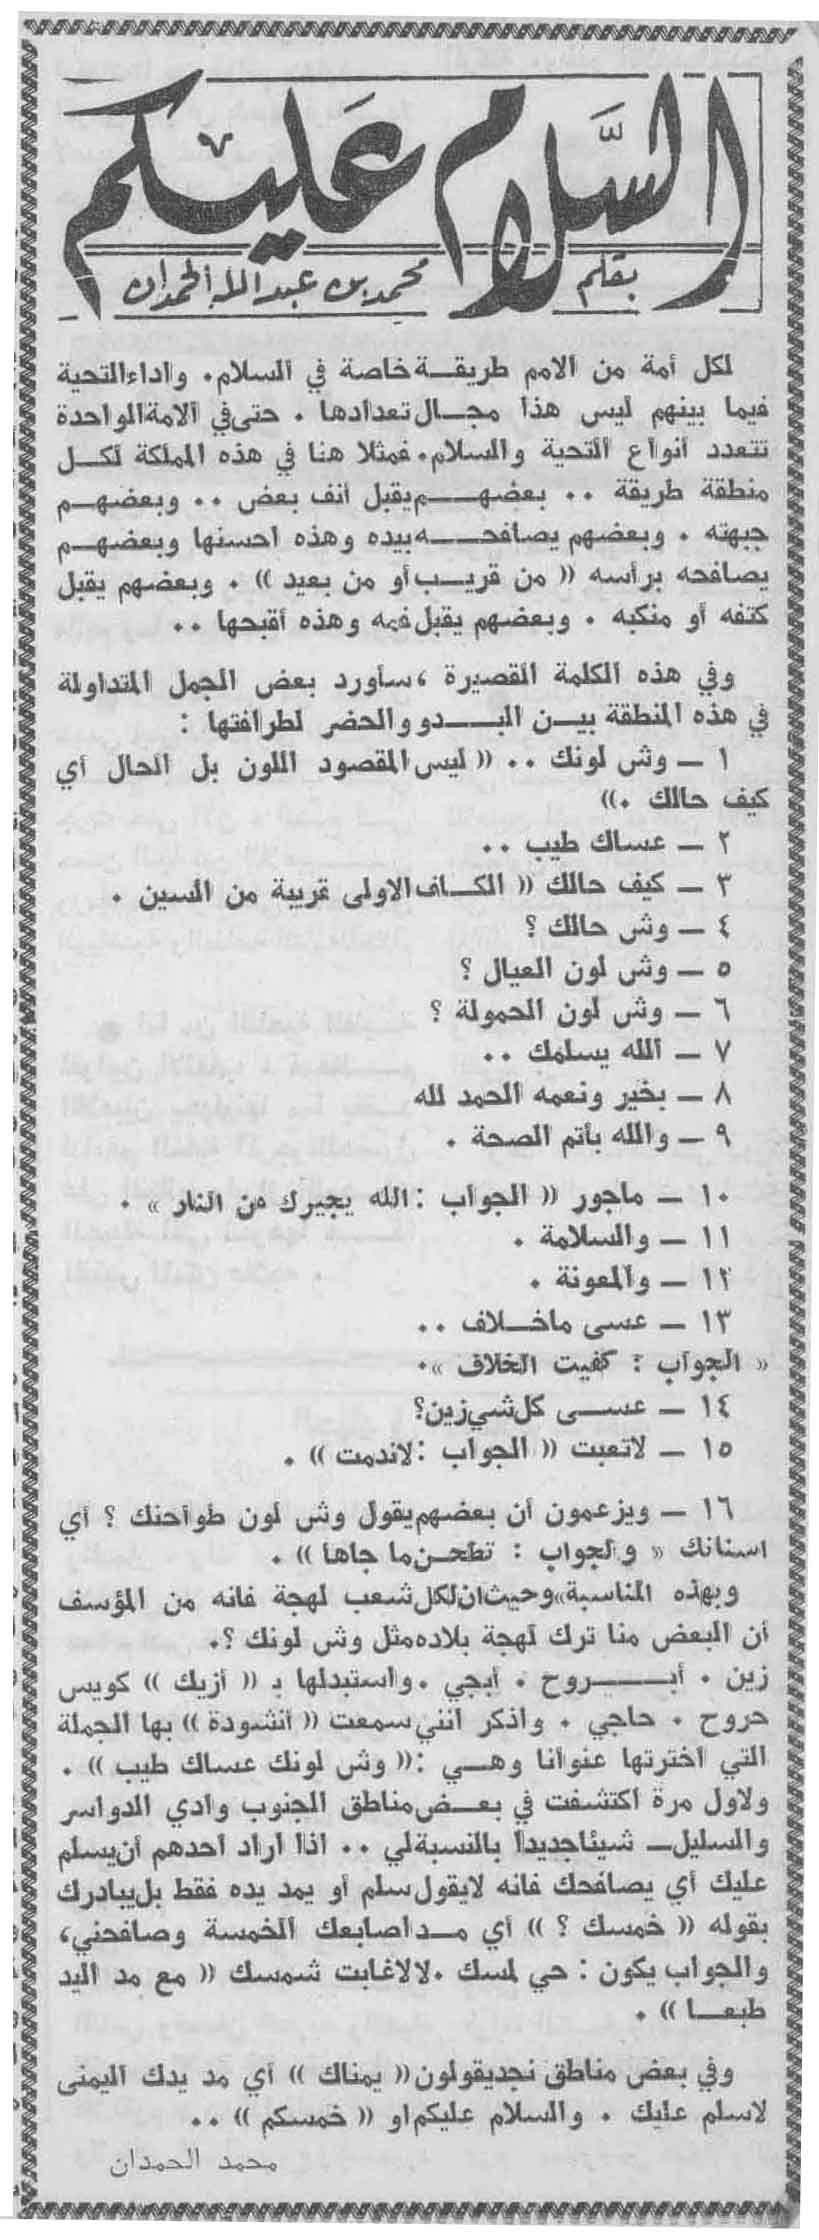 السلام عليكم
بقلم محمد بن عبد الله الحمدان
لكل أمة من الامم طريقــة خاصة في السلام. واداء التحية
فيما بينهم ليس هذا مجــال تعدادها . حتى في الامة الواحدة
تتعدد أنواع التحية والسلام. فمثلا هنا في هذه المملكة لكــل
منطقة طريقة .. بعضهــم يقبل أنف بعض .. وبعضهــم
جبهته . وبعضهم يصافحــه بيده وهذه احسنها وبعضهــم
يصافحه برأسه (( من قريــب أو من بعيد )) . وبعضهم يقبل
كتفه أو منكبه . وبعضهم يقبل فمه وهذه أقبحها ..
وفي هذه الكلمة القصيرة ، سأورد بعض الجمل المتداولة
في هذه المنطقة بيــن البــدو والحضر لطرافتها :
١ ـ وش لونك .. (( ليس المقصود اللون بل الحال أي
كيف حالك .))
٢ ـ عساك طيب ..
٣ ـ كيف حالك (( الكــاف الاولى قريبة من السين .
٤ ـ وش حالك ؟
٥ ـ وش لون العيال ؟
٦ ـ وش لون الحمولة ؟
٧ ـ الله يسلمك ..
٨ ـ بخير ونعمه الحمد لله
٩ ـ والله بأتم الصحة .
١٠ ـ ماجور (( الجواب : الله يجيرك من النار » .
١١ ـ والسلامة .
١٢ ـ والمعونة .
١٣ ـ عسى ماخــلاف ..
« الجواب : كفيت الخلاف ».
١٤ ـ عســى كل شي زين؟
١٥ ـ لاتعبت (( الجواب : لاندمت )) .
١٦ ـ ويزعمون أن بعضهم يقول وش لون طواحنك ؟ أي
اسنانك « والجواب : تطحــن ما جاها )) .
وبهذه المناسبة، وحيث ان لكل شعب لهجة فانه من المؤسف
أن البعض منا ترك لهجة بلاده مثل وش لونك ؟.
زين . أبــروح . أبجي . واستبدلها بـ (( أزيك )) كويس
حروح . حاجي . واذكر انني سمعت (( أنشودة )) بها الجملة
التي اخترتها عنوانا وهــي : (( وش لونك عساك طيب )) .
ولاول مرة اكتشفت في بعــض مناطق الجنوب وادي الدواسر
والسليل ـ شيئا جديدا بالنسبة لي .. اذا اراد احدهم أن يسلم
عليك أي يصافحك فانه لايقول سلم أو يمد يده فقط بل يبادرك
بقوله (( خمسك ؟ )) أي مــد اصابعك الخمسة وصافحني،
والجواب يكون : حي لمسك . لا لاغابت شمسك (( مع مد اليد
طبعــا )) .
وفي بعض مناطق نجد يقولون (( يمناك )) أي مد يدك اليمنى
لاسلم عليك . والسلام عليكم او (( خمسكم )) ..
محمد الحمدان